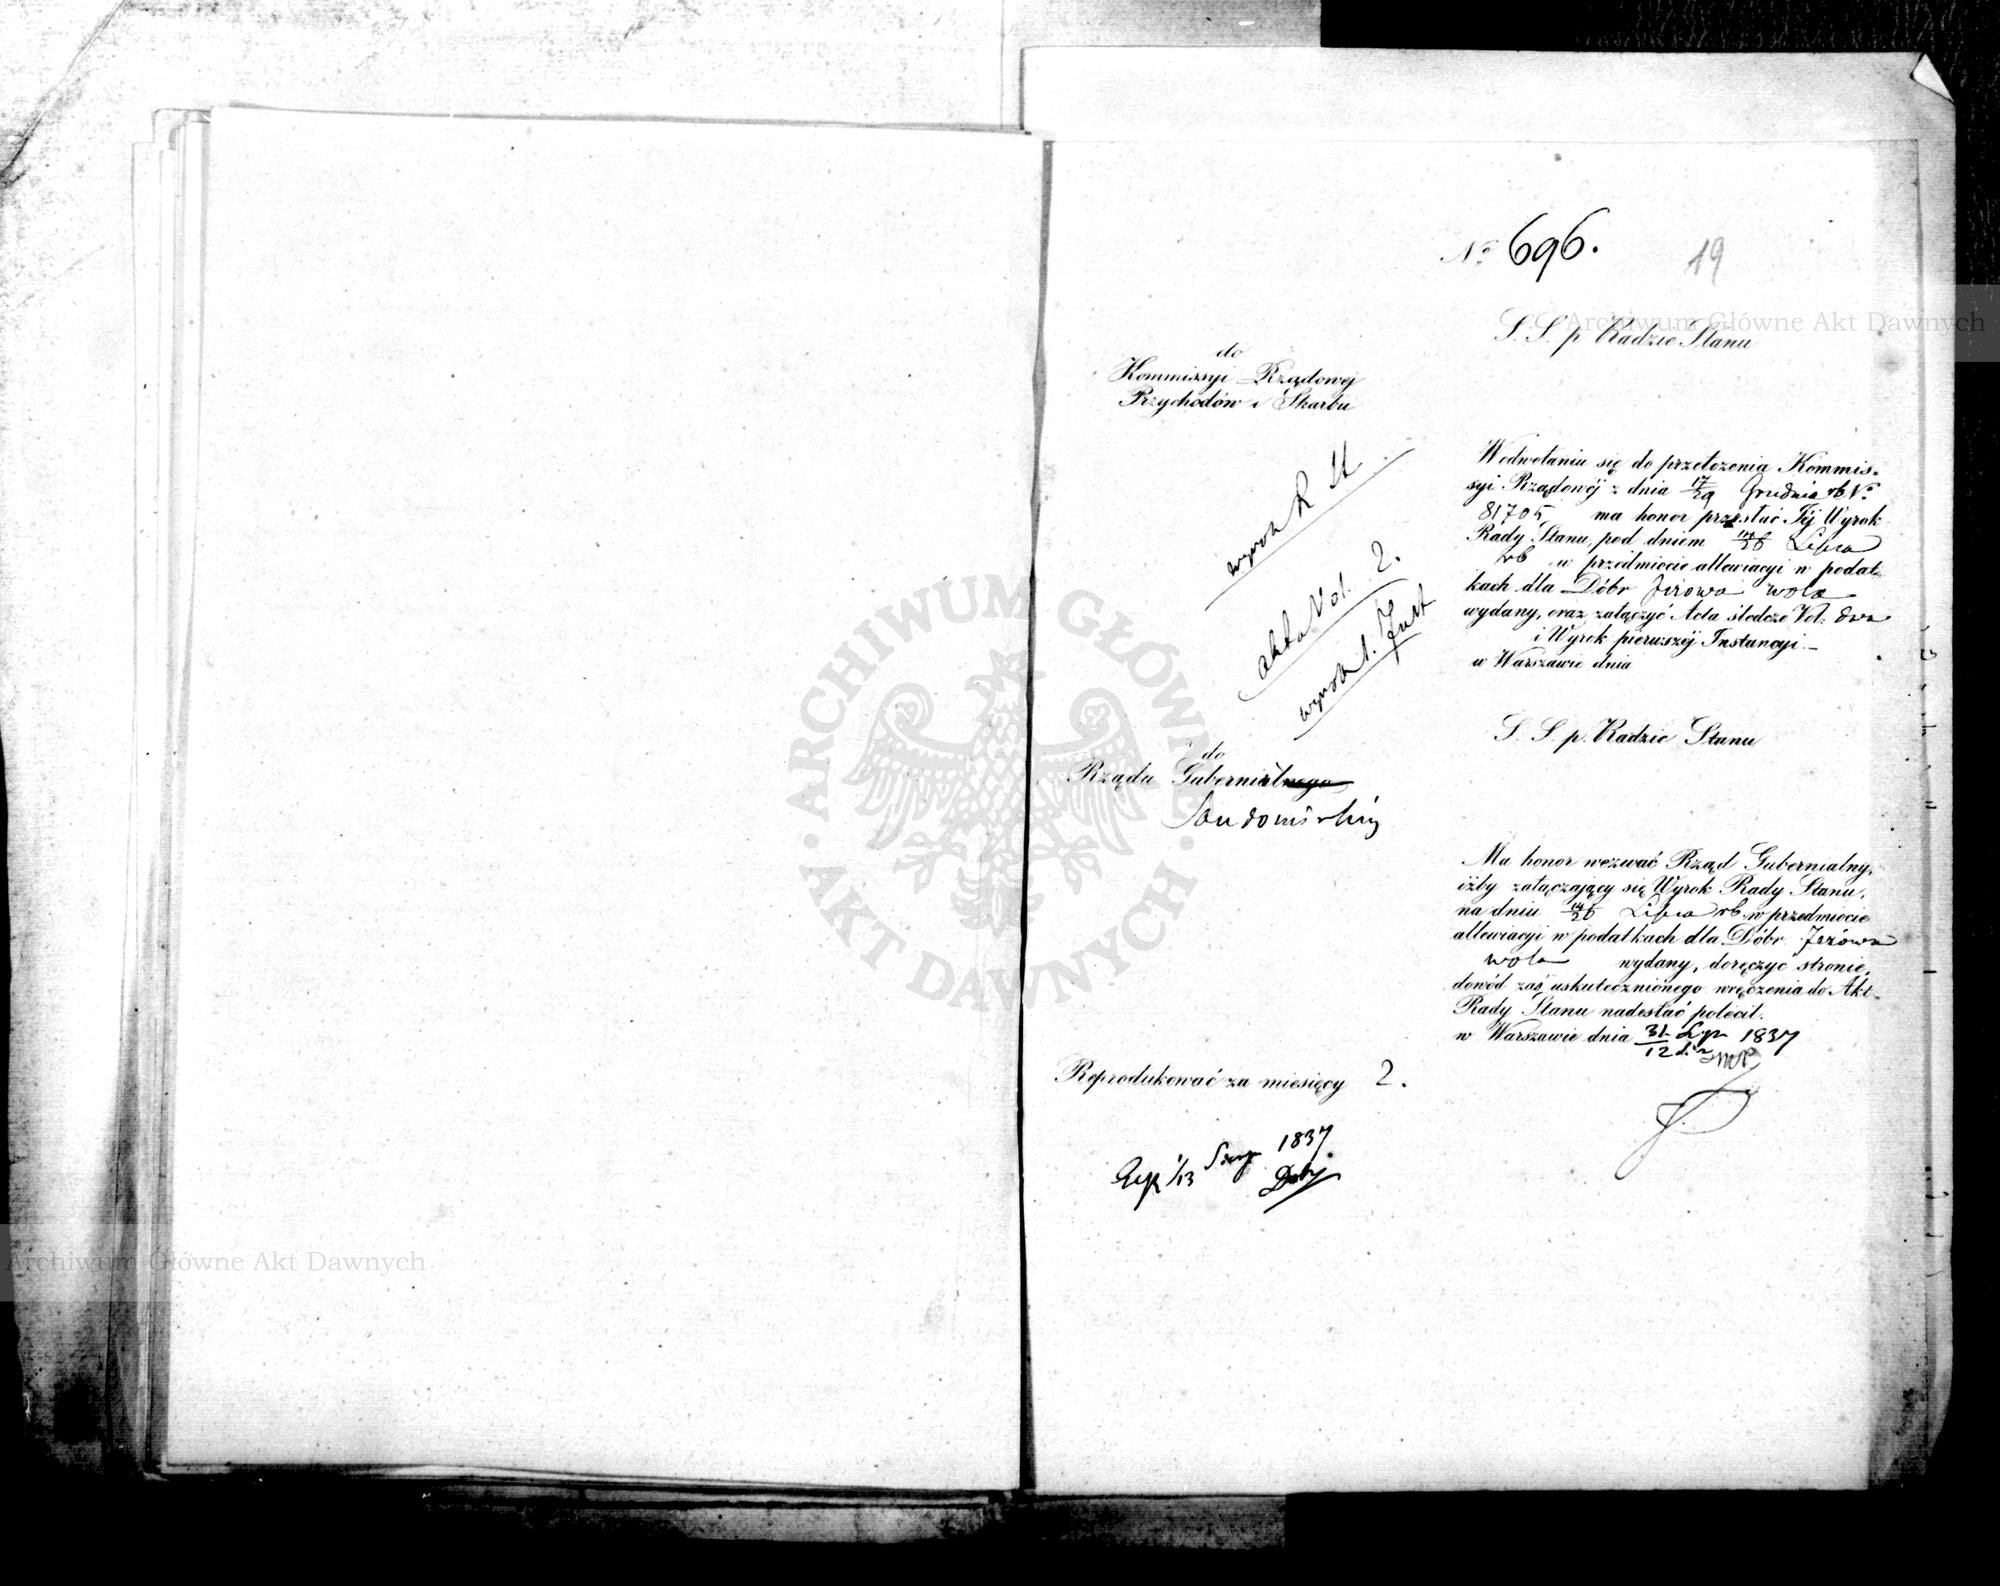 Nº 696.
19
S. S. p. Radzie Stanu
do
Kommissyi Rządowej
Przychodów i Skarbu
W odwołaniu się do przełożenia Kommis-
syi Rządowéj z dnia 17/29 Grudnia rb Nº
81705 ma honor przesłać Jéj Wyrok
Rady Stanu, pod dniem 14/26 Lipca
rb w przedmiocie allewiacyi w podat-
kach dla Dóbr Jeżowa wola
wydany, oraz załączyć Acta śledcze Vol: dwa
i Wyrok pierwszéj Instancyi.
w Warszawie dnia
wyrok R St
akta Vol. 2.
wyrok 1. Inst
S. S. p. Radzie Stanu
do
Rządu Gubernialnego
Sandomirskiego
Ma honor wezwać Rząd Gubernialny,
iżby załączający się Wyrok Rady Stanu,
na dniu 14/26 Lipca rb. w przedmiocie
allewiacyi w podatkach dla Dóbr Jeżowa
wola wydany, doręczyć stronie,
dowód zaś uskutecznionego wręczenia do Akt
Rady Stanu nadesłać polecił.
w Warszawie dnia 31 Lip 1837
12
Reprodukować za miesięcy 2.
1/13 Sierp 1837
Archiwum Główne Akt Dawnych
ARCHIWUM GŁÓWNE · AKT DAWNYCH ·
Archiwum Główne Akt Dawnych